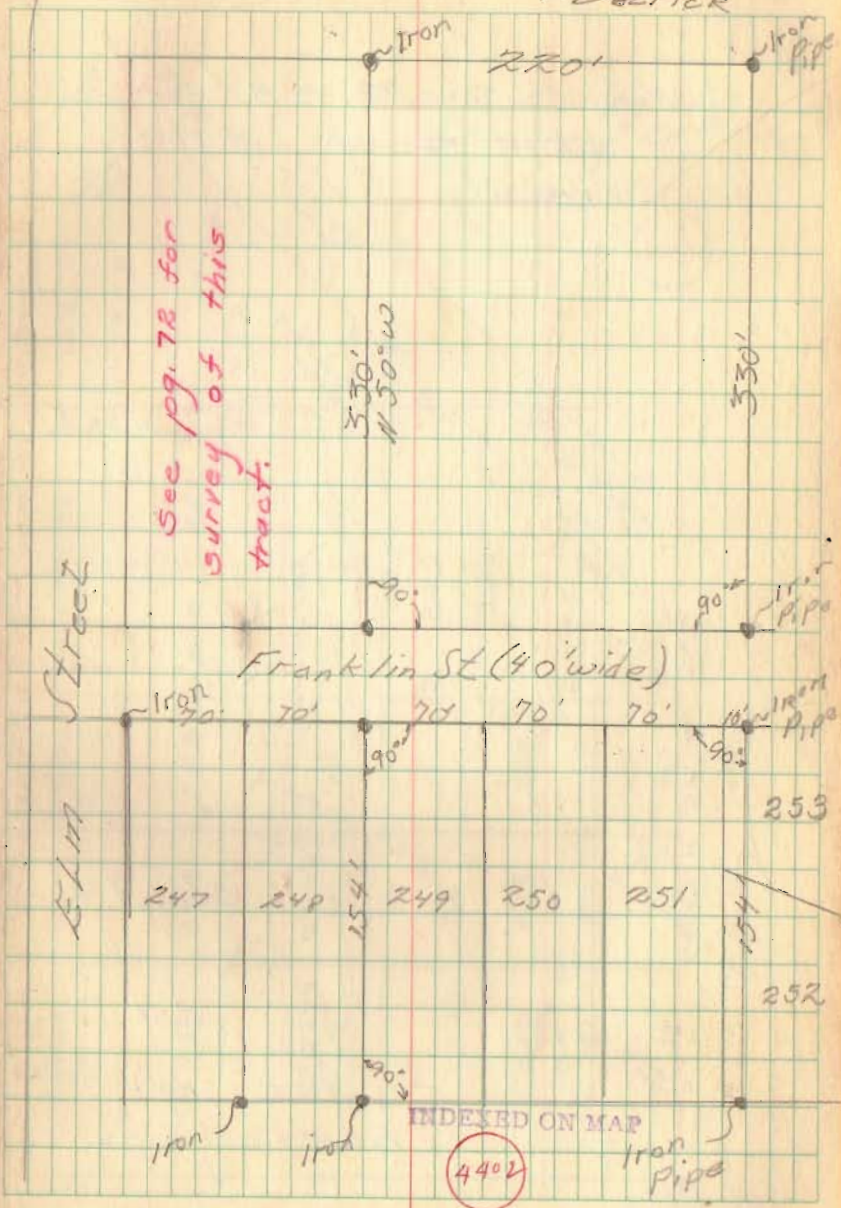 Iron
220'
Iron
Pipe
See pg. 72 for
survey of this
tract.
330'
N 50° W
330'
90°
90°
Iron
Pipe
Street
Elm
Franklin St (40' wide)
Iron
70'
70'
70'
70'
70'
10'
Iron
Pipe
90°
90°
253
247
248
154'
249
250
251
154'
252
90°
Iron
Iron
INDEXED ON MAP
4402
Iron
Pipe